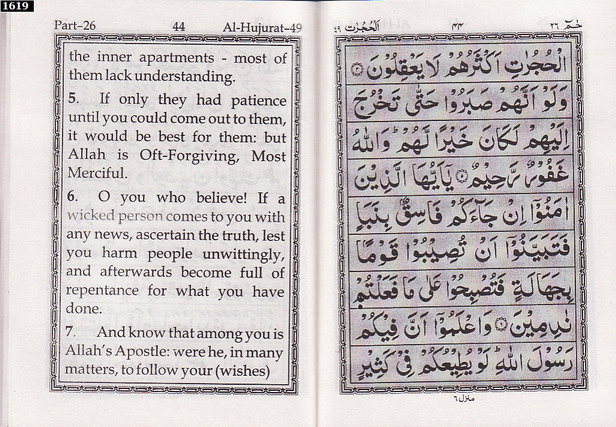 1619
Part-26 44 Al-Hujurat-49
the inner apartments - most of
them lack understanding.
5. If only they had patience
until you could come out to them,
it would be best for them: but
Allah is Oft-Forgiving, Most
Merciful.
6. O you who believe! If a
wicked person comes to you with
any news, ascertain the truth, lest
you harm people unwittingly,
and afterwards become full of
repentance for what you have
done.
7. And know that among you is
Allah's Apostle: were he, in many
matters, to follow your (wishes)
حٰمٓ ٢٦ ٤٤ الْحُجُرٰت ٤٩
الْحُجُرٰتِ اَكْثَرُهُمْ لَا يَعْقِلُوْنَ ۝٤
وَلَوْ اَنَّهُمْ صَبَرُوْا حَتّٰى تَخْرُجَ
اِلَيْهِمْ لَكَانَ خَيْرًا لَّهُمْ ۭ وَاللّٰهُ
غَفُوْرٌ رَّحِيْمٌ ۝٥ يٰٓاَيُّهَا الَّذِيْنَ
اٰمَنُوْٓا اِنْ جَاۗءَكُمْ فَاسِقٌۢ بِنَبَاٍ
فَتَبَيَّنُوْٓا اَنْ تُصِيْبُوْا قَوْمًۢا
بِجَهَالَةٍ فَتُصْبِحُوْا عَلٰي مَا فَعَلْتُمْ
نٰدِمِيْنَ ۝٦ وَاعْلَمُوْٓا اَنَّ فِيْكُمْ
رَسُوْلَ اللّٰهِ ۭ لَوْ يُطِيْعُكُمْ فِيْ كَثِيْرٍ
منزل ٦